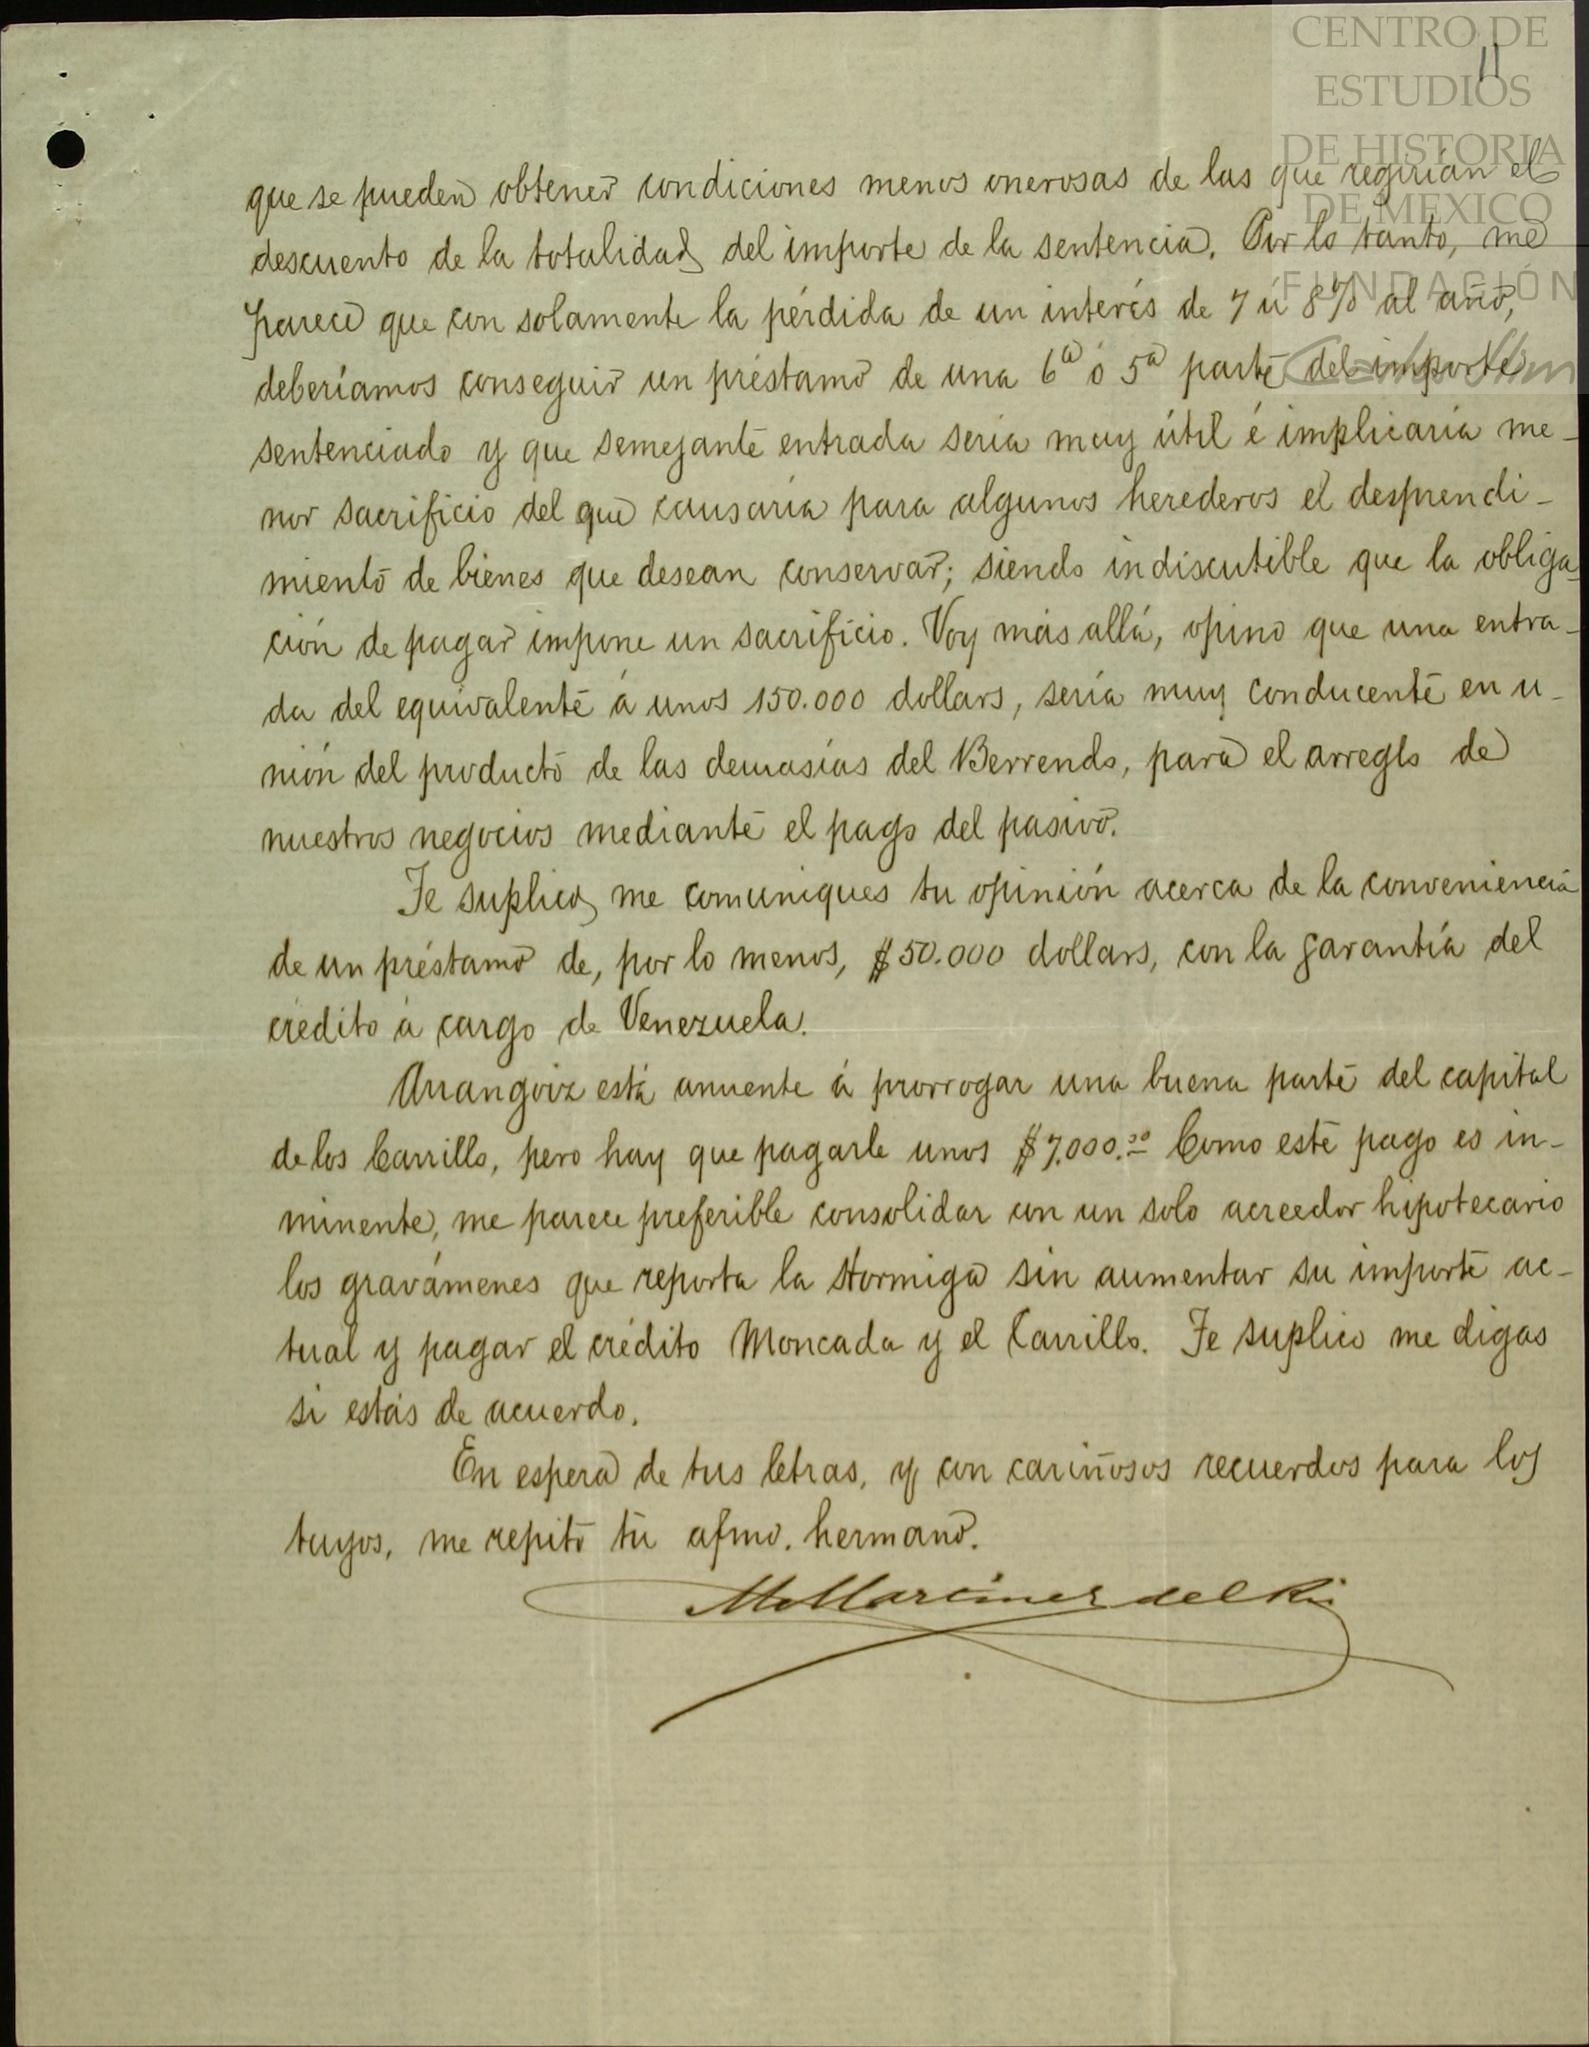 CENTRO DE
ESTUDIOS
DE HISTORIA
DE MEXICO
FUNDACIÓN
Carlos Slim
11
que se pueden obtener condiciones menos onerosas de las que regirían el
descuento de la totalidad del importe de la sentencia. Por lo tanto, me
parece que con solamente la pérdida de un interés de 7 ú 8% al año,
deberíamos conseguir un préstamo de una 6ª ó 5ª parte del importe
sentenciado y que semejante entrada sería muy útil é implicaría me-
nor sacrificio del que causaría para algunos herederos el desprendi-
miento de bienes que desean conservar; siendo indiscutible que la obliga-
ción de pagar impone un sacrificio. Voy más allá, opino que una entra-
da del equivalente á unos 150.000 dollars, sería muy conducente en u-
nión del producto de las demasías del Berrendo, para el arreglo de
nuestros negocios mediante el pago del pasivo.
Te suplico me comuniques tu opinión acerca de la conveniencia
de un préstamo de, por lo menos, $50.000 dollars, con la garantía del
crédito á cargo de Venezuela.
Arrangoiz está anuente á prorrogar una buena parte del capital
de los Carrillo, pero hay que pagarle unos $7.000.00 Como este pago es in-
minente, me parece preferible consolidar con un solo acreedor hipotecario
los gravámenes que reporta la Hormiga sin aumentar su importe ac-
tual y pagar el crédito Moncada y el Carrillo. Te suplico me digas
si estás de acuerdo.
En espera de tus letras, y con cariñosos recuerdos para los
tuyos, me repito tu afmo. hermano.
M Martinez del Rio